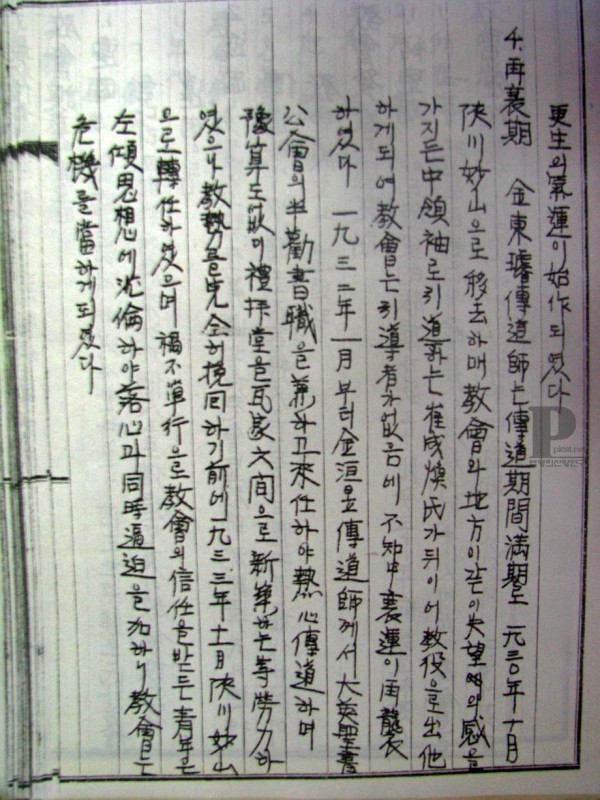 更生의 氣運이 始作되엿다
4. 再衰期 金東璿傳道師는 傳道期間滿期로 一九三〇年 十月
陜川妙山으로 移去하매 敎會와 地方이 같이 失望 感을
가지든 中 領袖로 引導하는 崔成煥氏가 뒤이어 敎役으로 出他
하게되여 敎會는 引導者가 없음에 不知中 衰運이 再襲
하엿다 一九三二年 一月부터 金洹昱傳道師께서 大英聖書
公會의 半勸書職을 兼하고 來任하야 熱心傳道하며
豫算도 없이 禮拜堂을 瓦家六間으로 新築하는 等 勞力하
엿으나 敎勢를 完全히 挽回하기前에 一九三三年 十一月 陜川妙山
으로 轉任하엿으며 禍不單行으로 敎會의 信任을 받든 靑年은
左傾思想에 沈倫하야 落心과 同時 逼迫을 加하니 敎會는
危機를 當하게 되엿다
P
picat.net